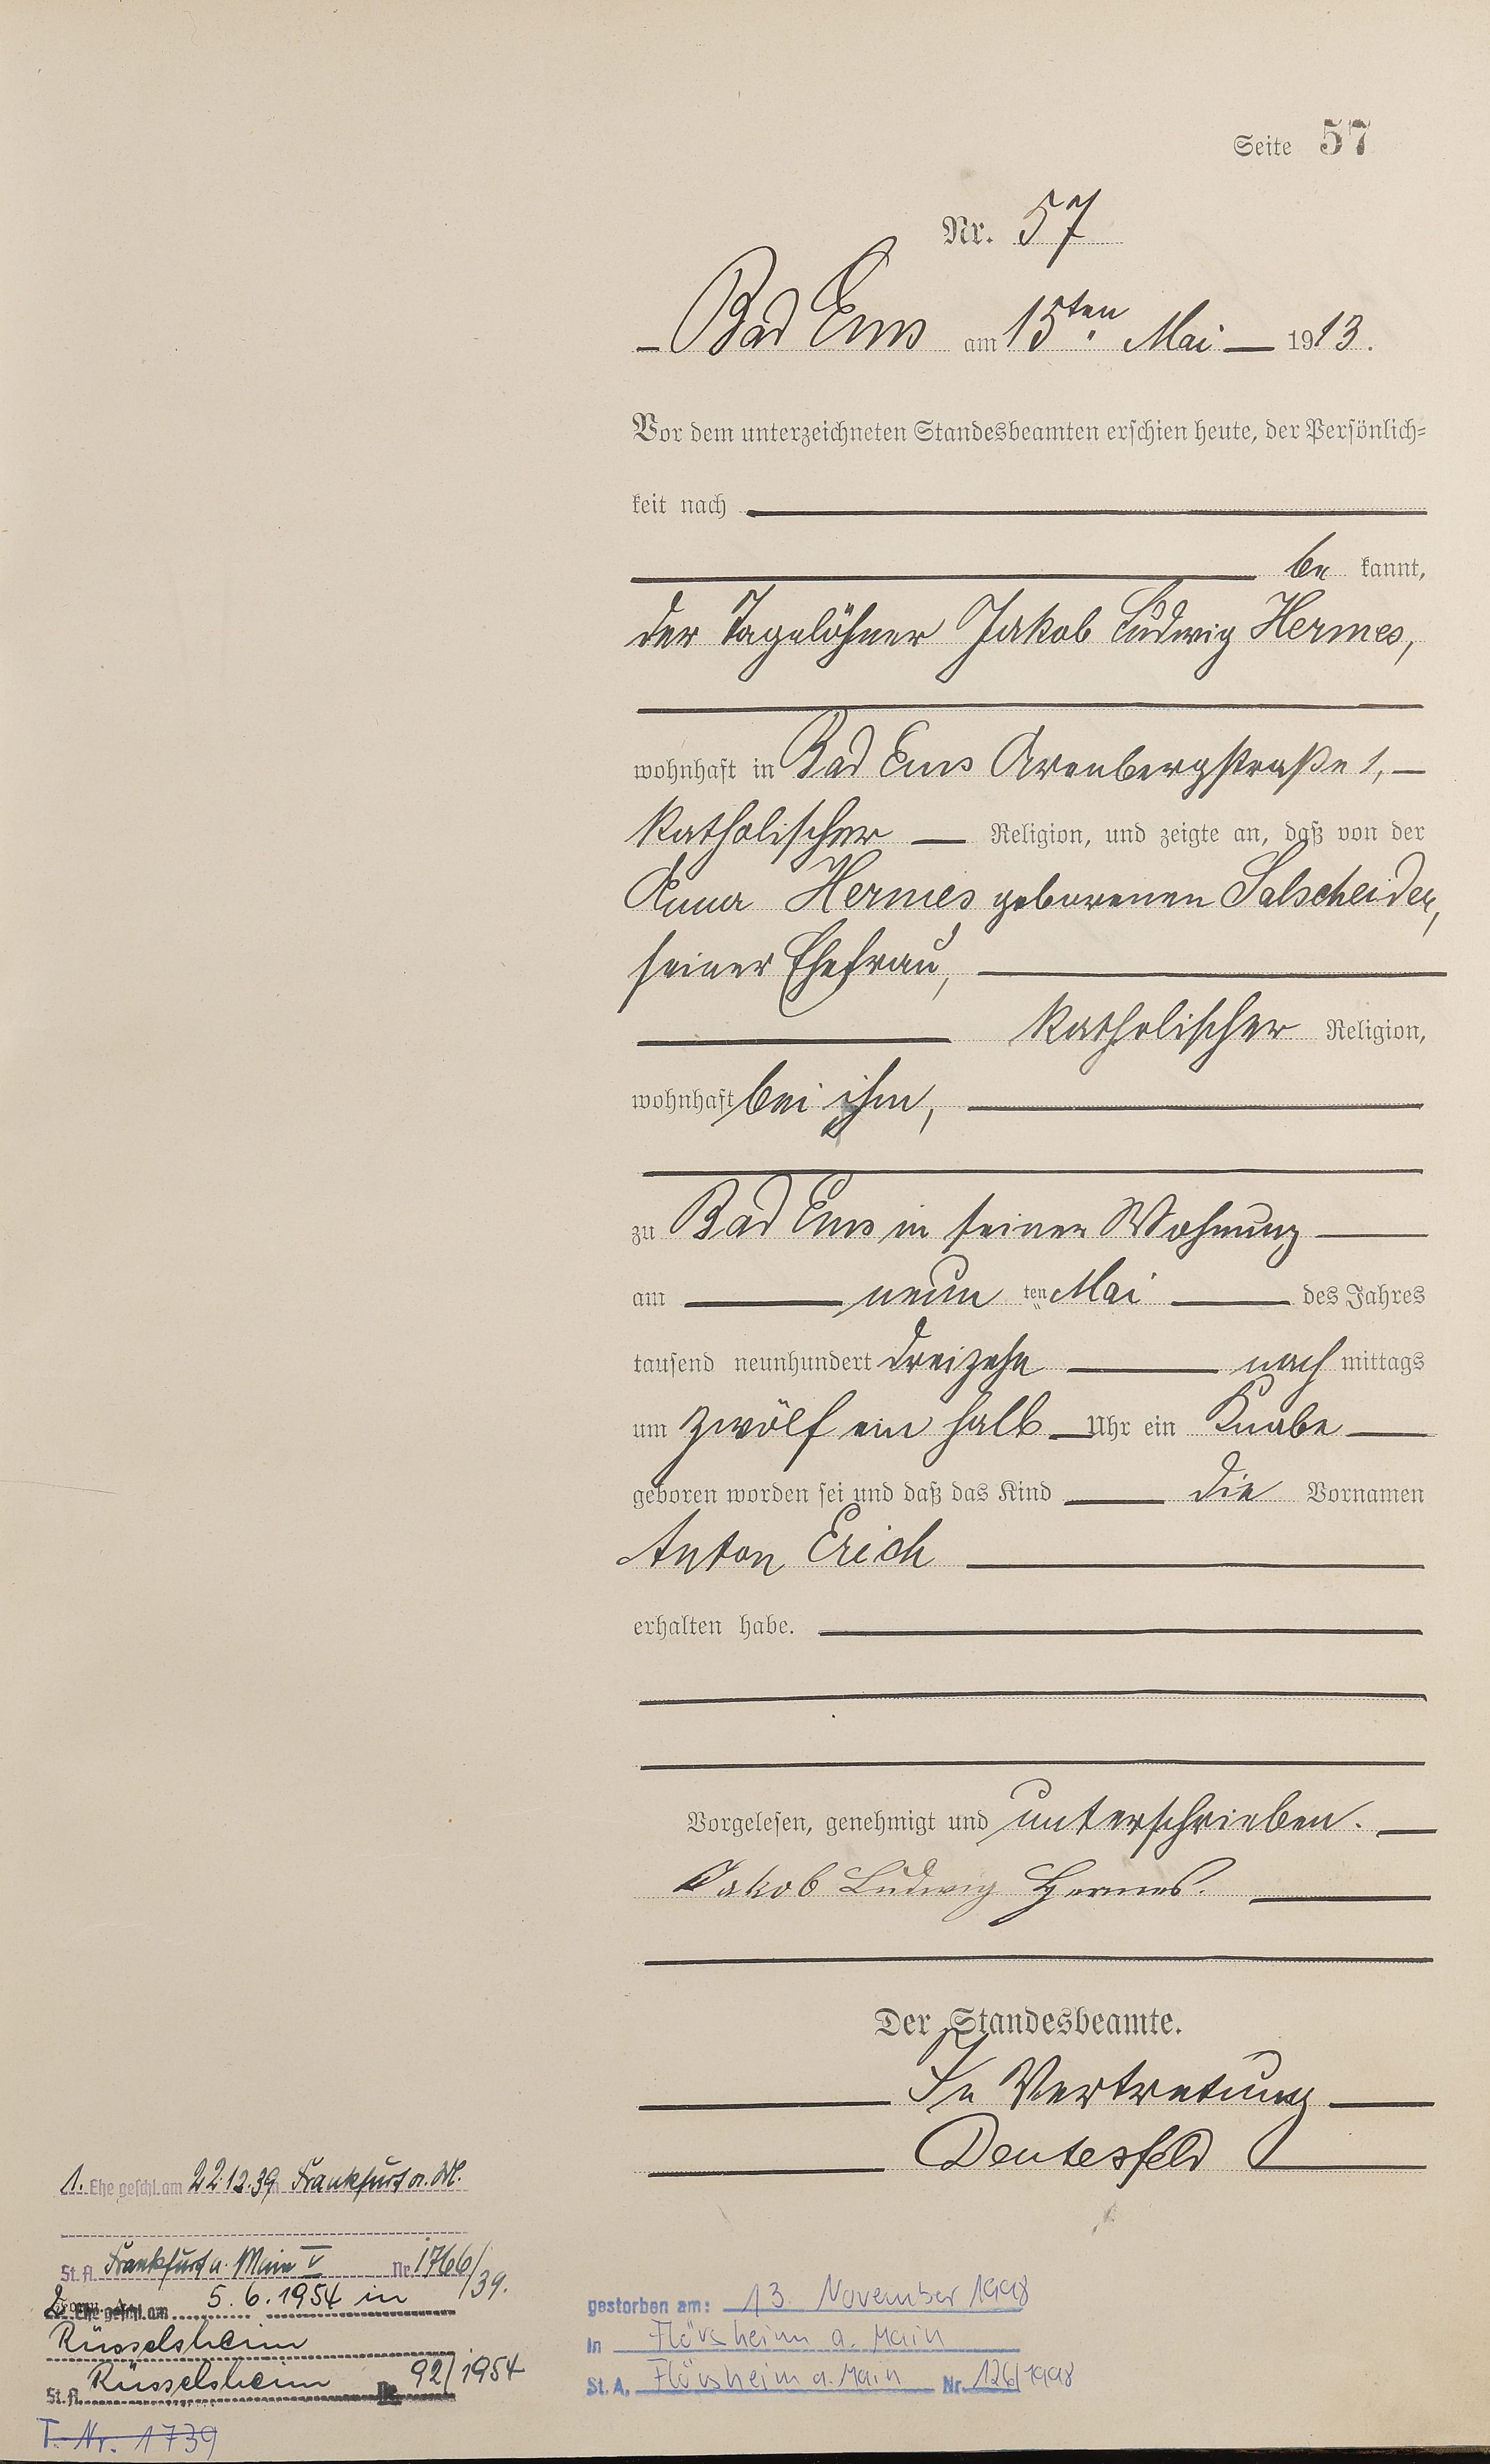 Seite 57
Nr. 57
Bad Ems am 15ten Mai 1913.
Vor dem unterzeichneten Standesbeamten erschien heute, der Persönlich-
keit nach
be kannt,
der Tagelöhner Jakob Ludwig Hermes,
wohnhaft in Bad Ems Arenbergstraße 1,
katholischer Religion, und zeigte an, daß von der
Anna Hermes geborenen Salscheider,
seiner Ehefrau,
katholischer Religion,
wohnhaft bei ihm,
zu Bad Ems in seiner Wohnung
am neun ten Mai des Jahres
tausend neunhundert dreizehn nach mittags
um zwölf ein halb Uhr ein Knabe
geboren worden sei und daß das Kind die Vornamen
Anton Erich
erhalten habe.
Vorgelesen, genehmigt und unterschrieben.
Jakob Ludwig Hermes.
Der Standesbeamte.
In Vertretung
Deutesfeld
1. Ehe geschl. am 22.12.39 Frankfurt a. M.
St. A. Frankfurt a. Main V Nr 1766/39.
2. Ehe geschl. am 5.6.1954 in
Rüsselsheim
St. A. Rüsselsheim Nr. 92/1954
T. Nr. 1739
gestorben am: 13. November 1998
in Flörsheim a. Main
St. A. Flörsheim a. Main Nr. 126/1998